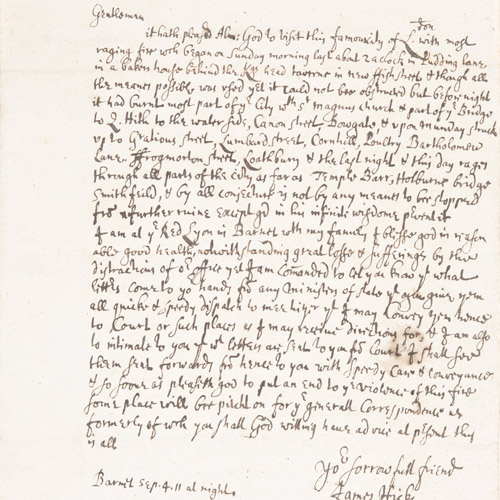 Gentlemen
it hath pleasd Alm: God to visit this famous city of L:don with most
raging fire wch began on Sunday morning last about 2 a clock in Pudding Lane
in a bakers house behind the Kgs head taverne in new ffish street & though all
the meanes possible was used yet it could not bee obstructed but before night
it had burnt most part of ye City wth St magnus church & part of ye Bridge
to Q. Hith to the water side, Canon street, Dowgate, & upon munday struck
up to Gratious street, Lumbard street, Cornhill, Poultry Bartholomew
Lane ffrogmorton street, Loathbury & the last night & this day rages
through all parts of the city as far as Temple Barr, Holburne bridge
Smithfeild, & by all conjecture is not by any meanes to bee stopped
from further ruine except god in his infinite wisdome prevent it
I am at ye Red Lyon in Barnet with my family & blesse god in reason
able good health, notwithstanding great losse & sufferings by the
distractions of or office yet I am Comanded to let you know yt what
letters Come to yr handes for any Ministers of state yt you give them
all quick & speedy dispatch to mee hither yt I may Convey them hence
to Court or such places as I may receive directions for, & I am also
to intimate to you yt wt letters are sent to you from Court I shall see
them sent forwards from hence to you with speedy Care & conveyance
& so soone as pleaseth god to put an end to ye violence of this fire
some place will bee pitcht on for ye generall Correspondence as
formerly of wch you shall God willing have advice at present this
is all
Yor sorrowfull friend
Barnet Sep. 4. 11 at night.
James Hicks